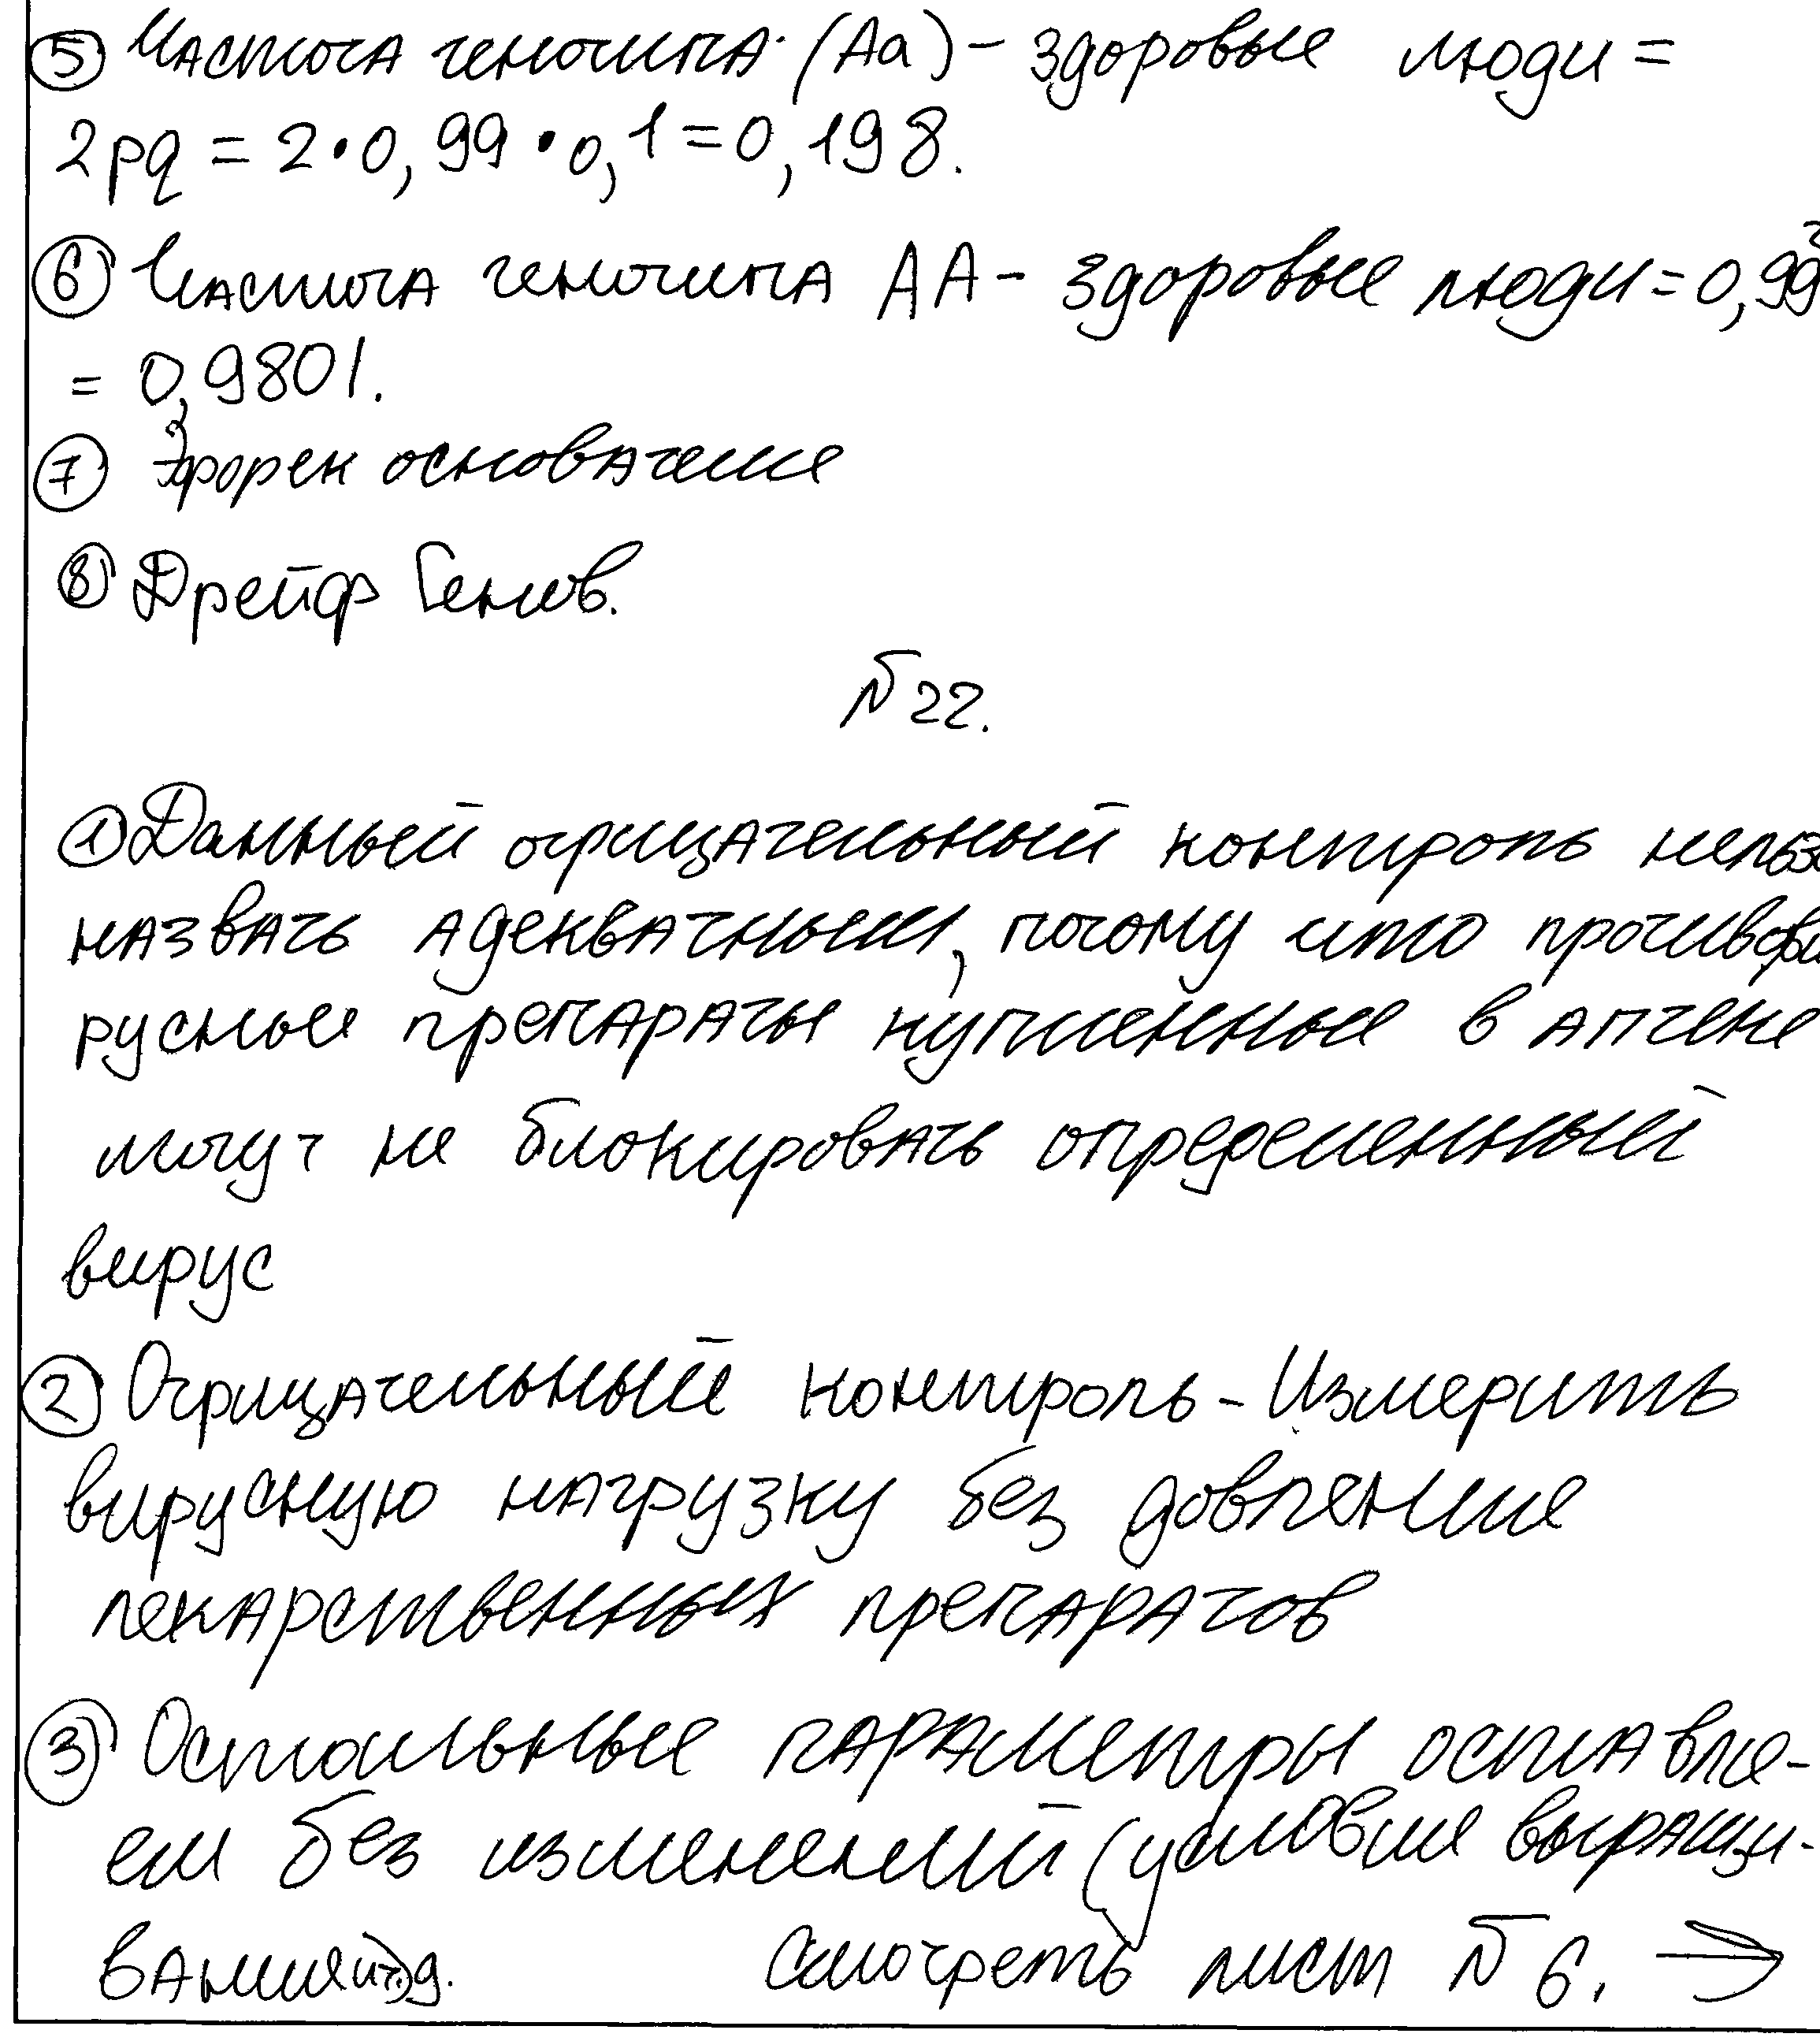 ⑤ Частота генотипа (Aa) – здоровые люди =
2pq = 2·0,99·0,1=0,198.
⑥ Частота генотипа AA – здоровые люди = 0,99²
= 0,9801.
⑦ Эффект основателя
⑧ Дрейф Генов.
№22.
① Данный отрицательный контроль нельзя
назвать адекватным, потому что противови
русные препараты купленные в аптеке
могут не блокировать определенный
вирус
② Отрицательный контроль – Измерить
вирусную нагрузку без довления
лекарственных препаратов
③ Остальные параметры оставля-
ем без изменений (условия выращи-
вания и т.д.
Смотреть лист № 6. →